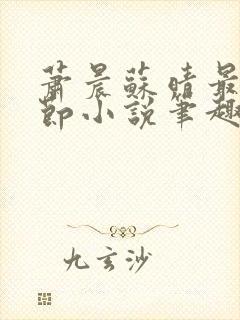 蕭晨蘇晴最
節小說筆趣
九玄沙